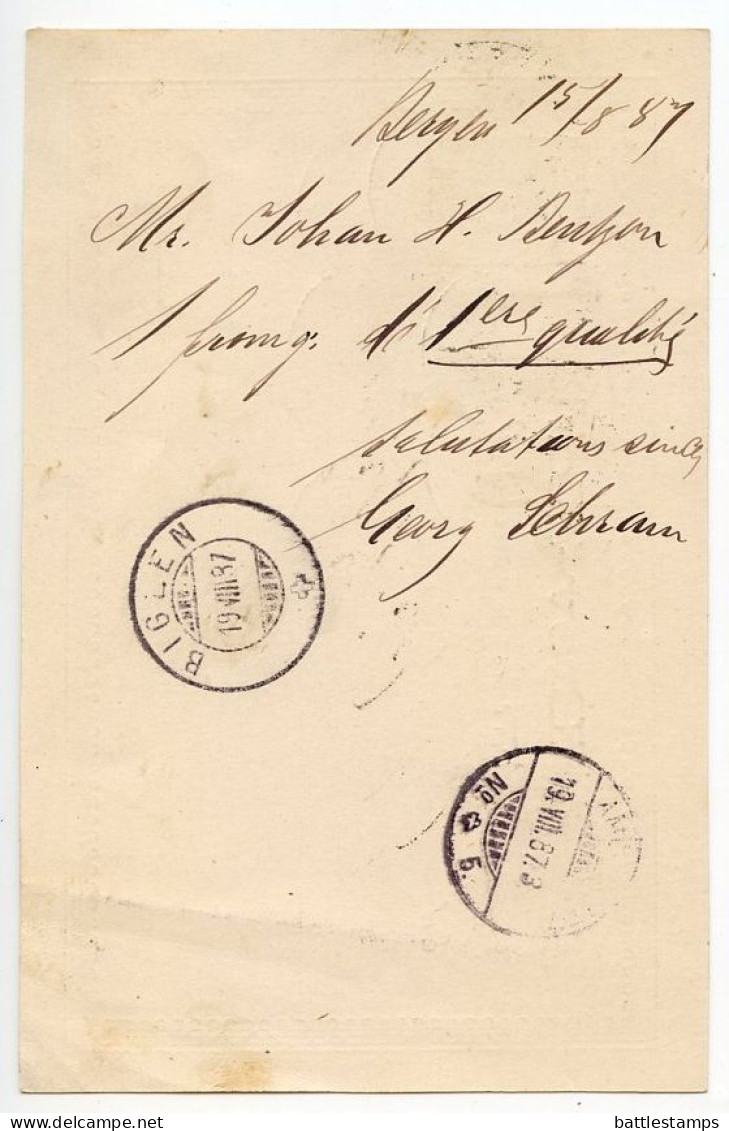 Bergen 15/8 87
Mr. Johan H. Bentzon
1 fromg. de 1ere qualité
salutations sinc
Georg
BIGLEN
19 VIII 87
No 5.
19. VIII. 87. 3
battlestamps